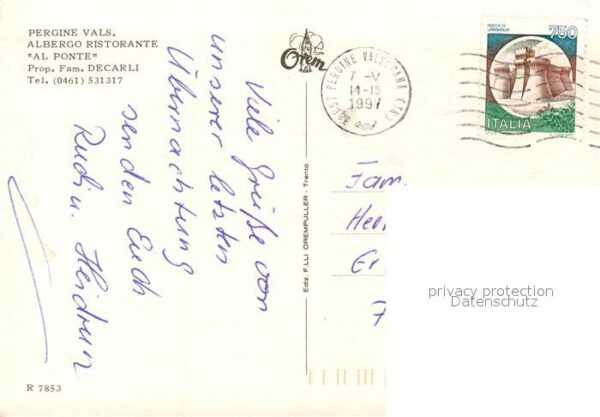 PERGINE VALS.
ALBERGO RISTORANTE
"AL PONTE"
Prop. Fam. DECARLI
Tel. (0461) 531317
Orem
PERGINE VALSUGANA (TN)
7 -V
14-15
1997
ROCCA DI
URBISAGLIA
750
ITALIA
Viele Grüße von
unserer letzten
Übernachtung
senden Euch
Rudi u. Heidrun
Ediz. F.LLI OREMPULLER - Trento
Fam
He
Er
privacy protection
Datenschutz
R 7853